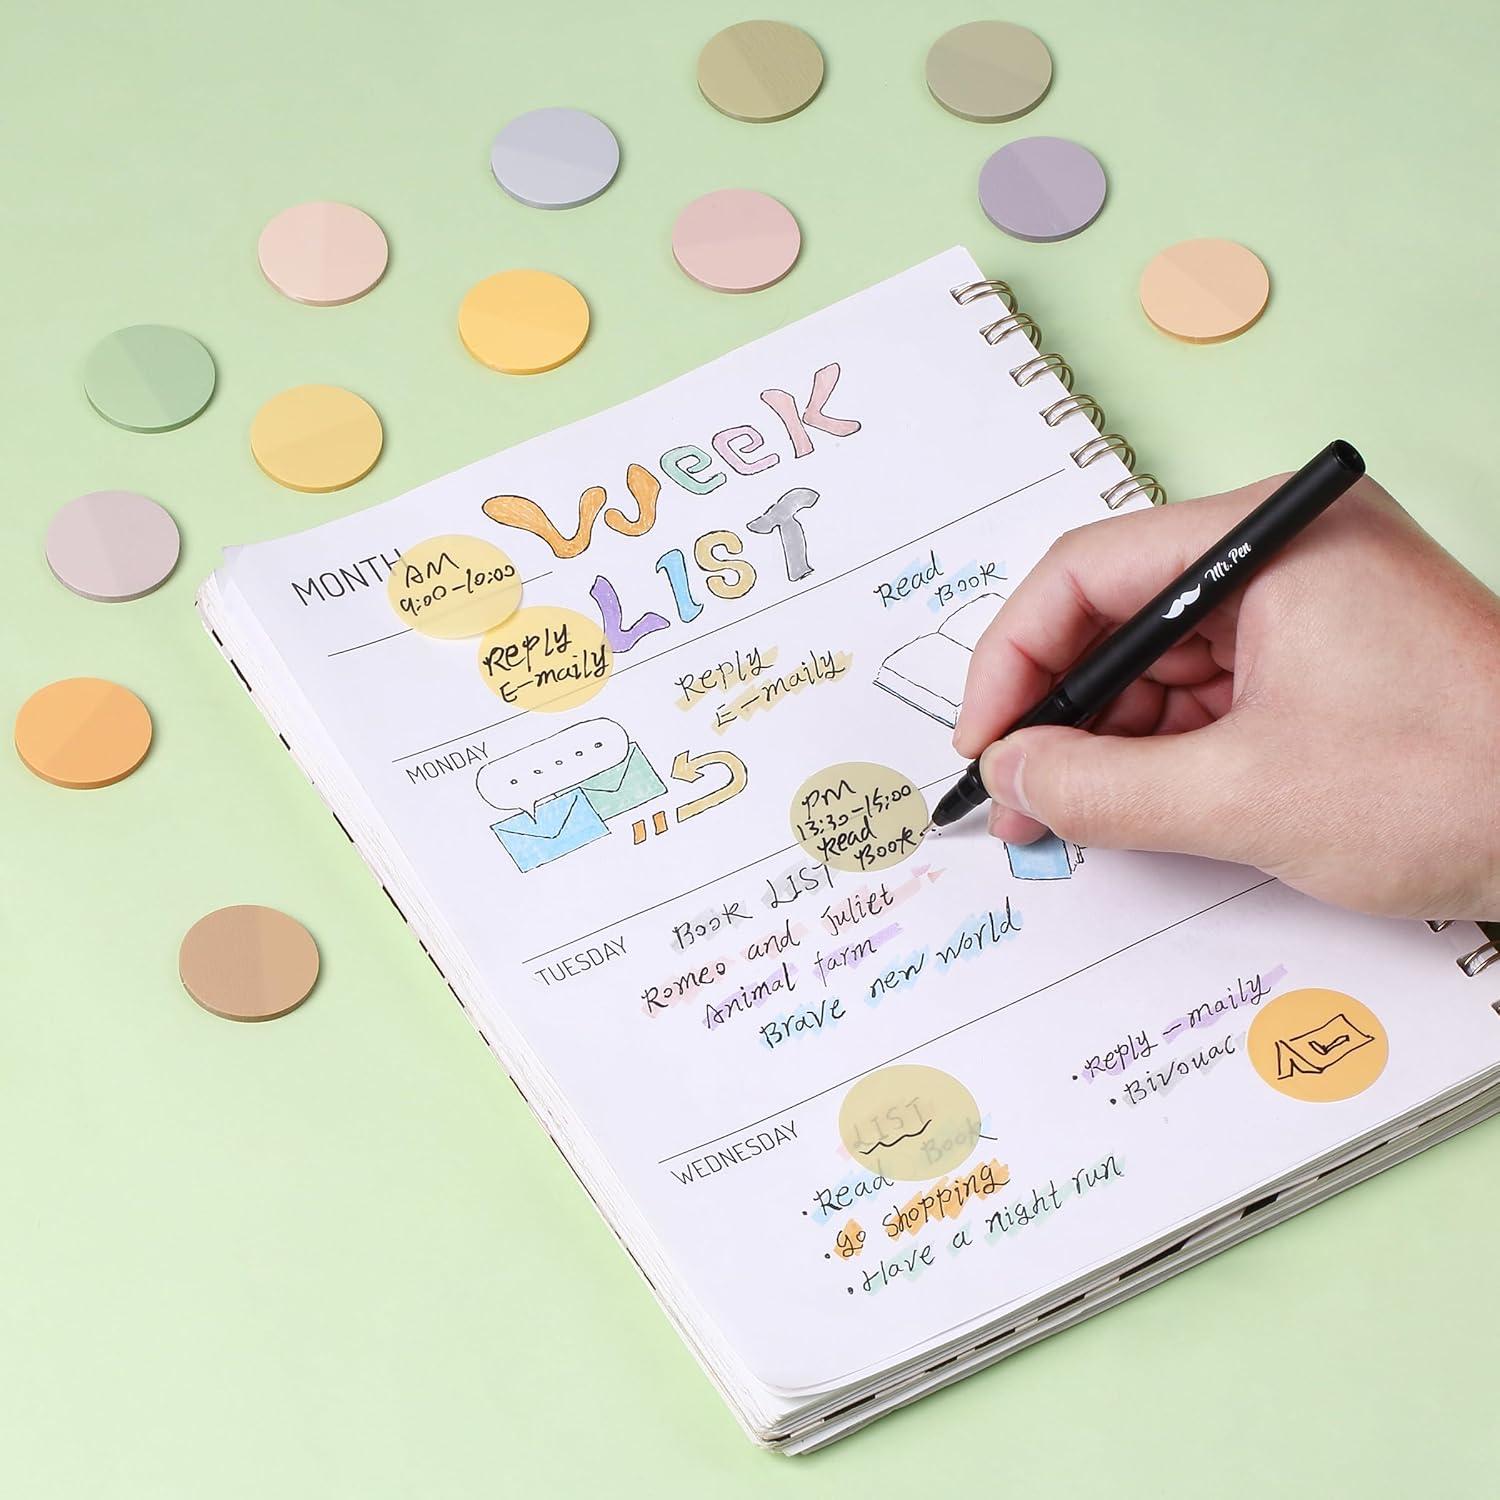 Week
LIST
MONTH
AM
9:00-10:00
REPLY
E-maily
MONDAY
REPLY
E-maily
Read
Book
PM
13:30-15:00
Read
Book
TUESDAY
Book LIST
Romeo and Juliet
Animal farm
Brave new world
WEDNESDAY
LIST
• Read Book
• Go shopping
• Have a night run
• Reply-maily
• Bivouac
Mr. Pen